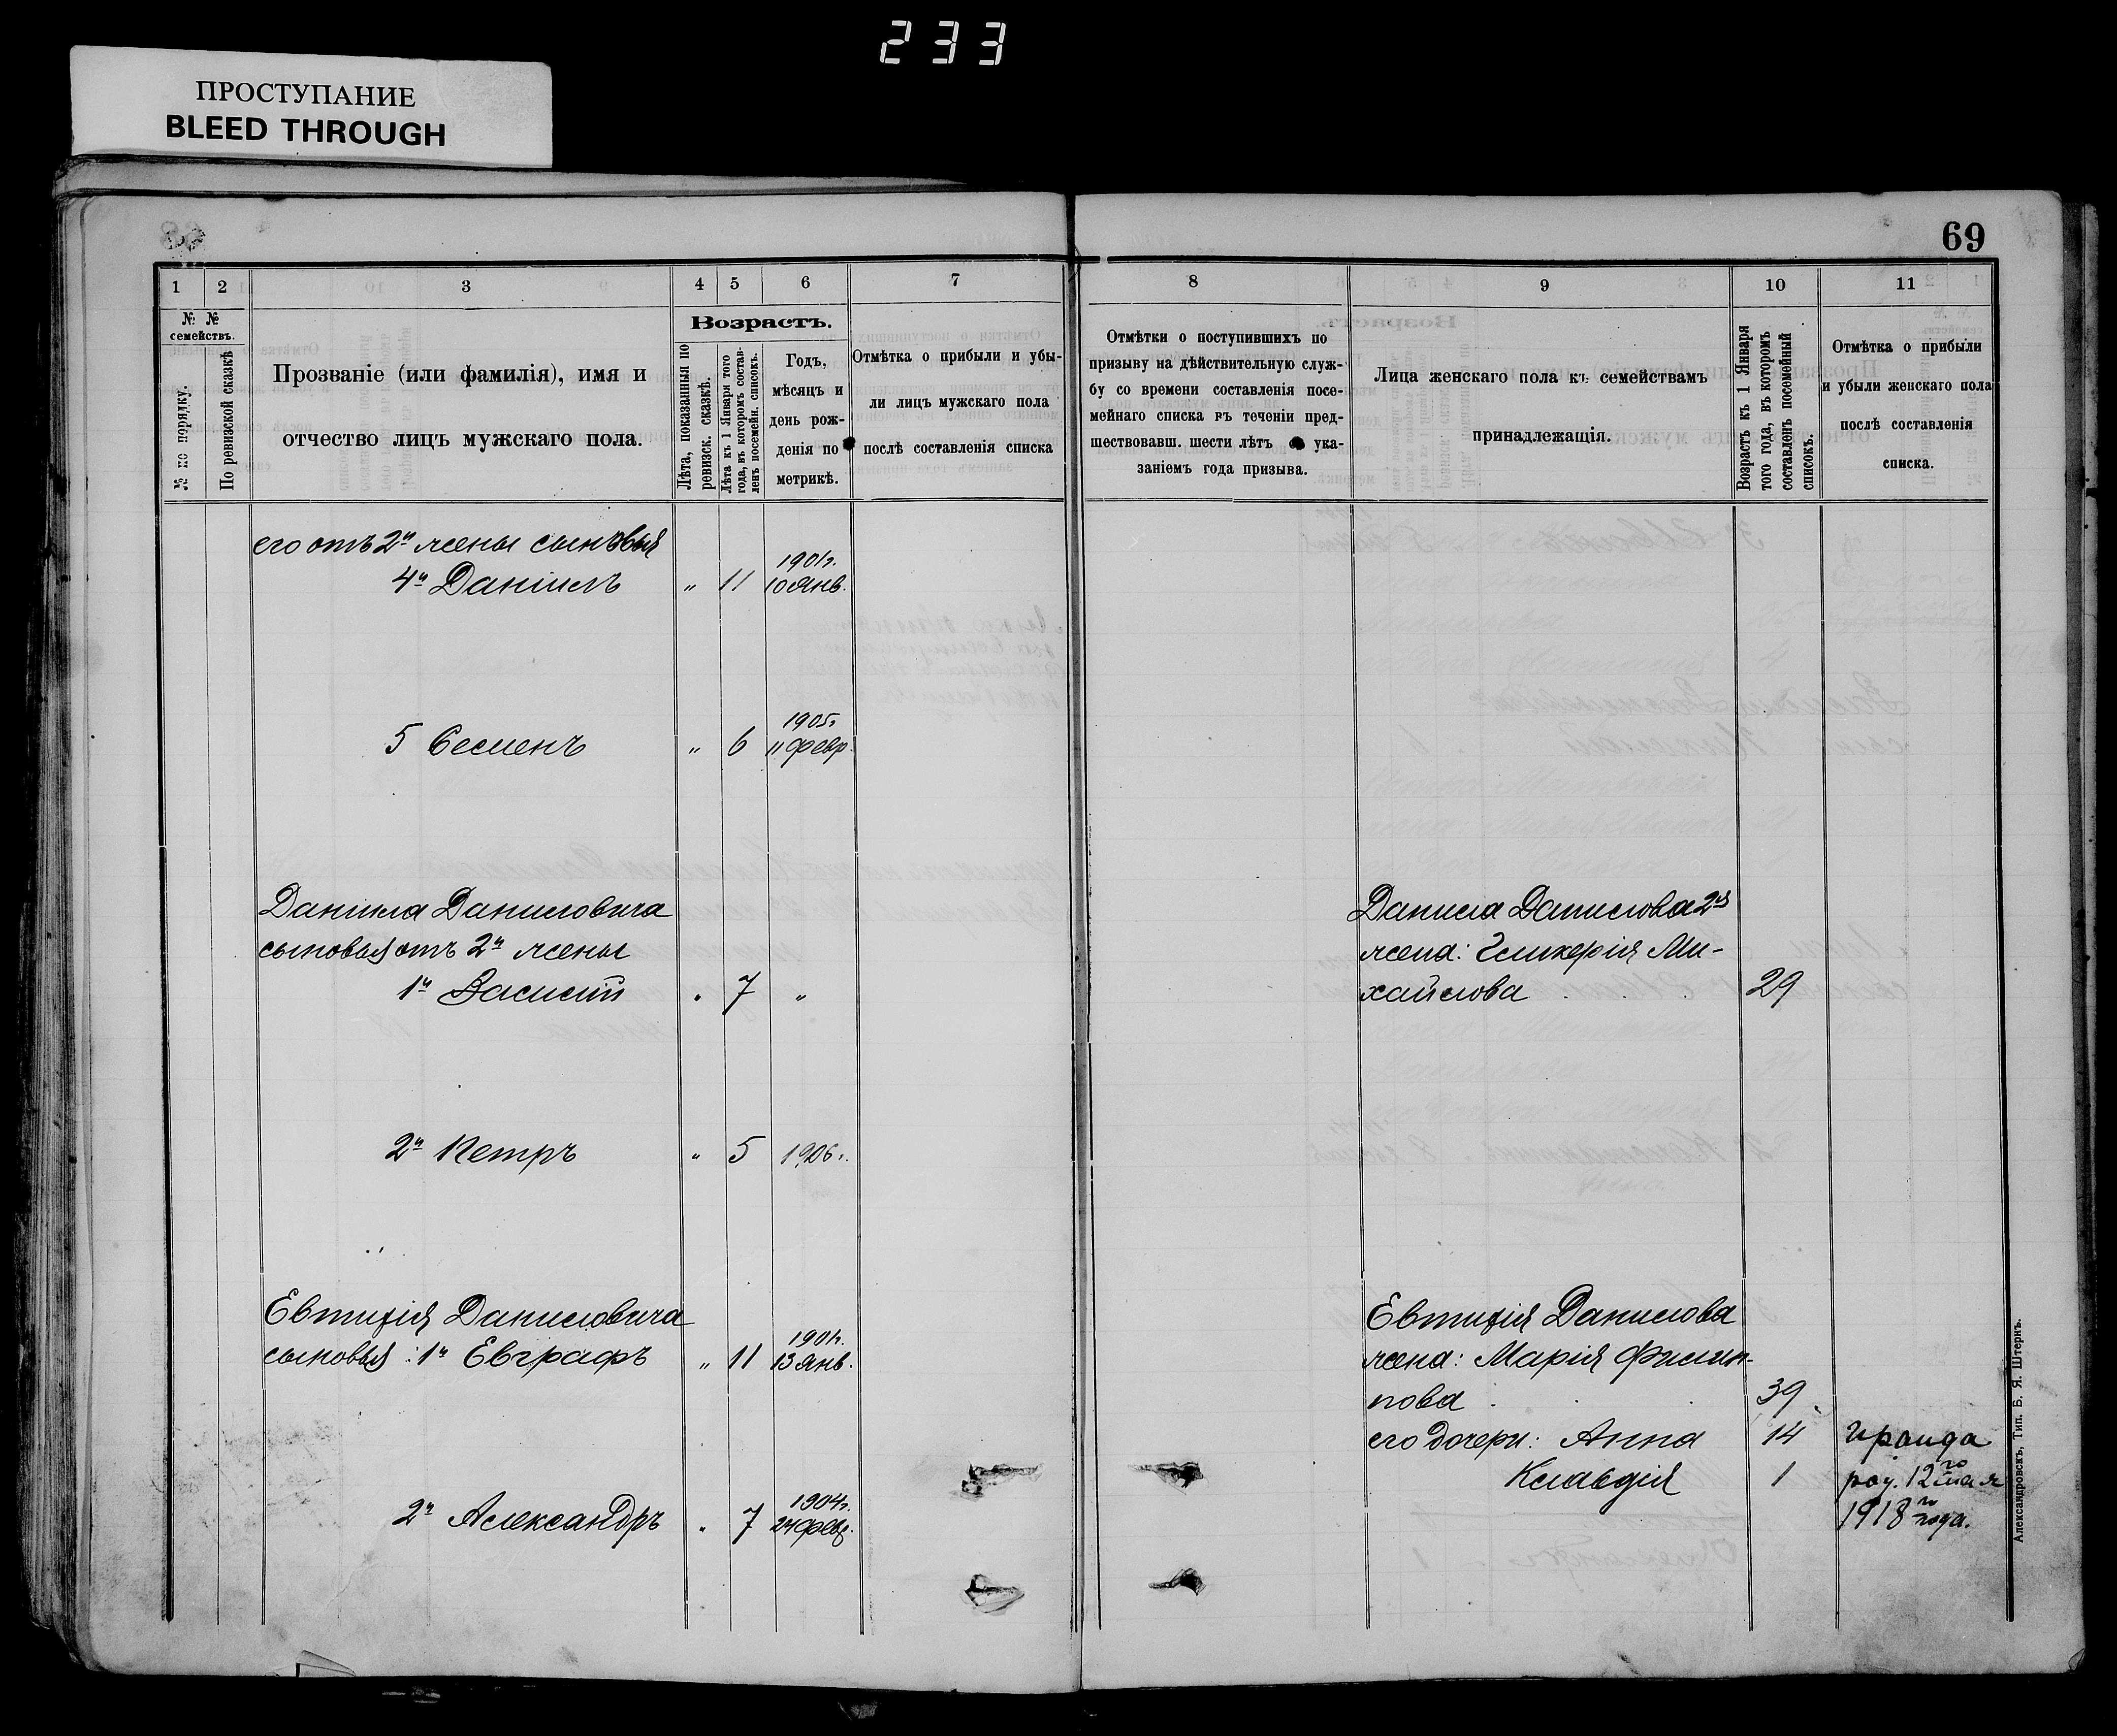 233
ПРОСТУПАНИЕ
BLEED THROUGH
69
1 2 3 4 5 6 7
№ №
семействъ.
№ по порядку.
По ревизской сказкѣ
Прозваніе (или фамилія), имя и
отчество лицъ мужскаго пола.
Возрастъ.
Лѣта, показанныя по
ревизск. сказкѣ.
Лѣта къ 1 Января того
года, въ которомъ состав-
ленъ посемейн. списокъ.
Годъ,
мѣсяцъ и
день рож-
денія по
метрикѣ.
Отмѣтка о прибыли и убы-
ли лицъ мужскаго пола
послѣ составленія списка
его отъ 2й жены сыновья
4й Даніилъ " 11 1901г. 10 Янв.
5 Семенъ " 6 1905г. 11 февр.
Даніила Даниловича
сыновья отъ 2й жены
1й Василій " 7 "
2й Петръ " 5 1906г.
Евтихія Даниловича
сыновья: 1й Евграфъ " 11 1901г. 13 Янв.
2й Александръ " 7 1904г. 24 февр.
8 9 10 11
Отмѣтки о поступившихъ по
призыву на дѣйствительную служ-
бу со времени составленія посе-
мейнаго списка въ теченіи пред-
шествовавш. шести лѣтъ ука-
заніемъ года призыва.
Лица женскаго пола къ семействамъ
принадлежащія.
Возрастъ къ 1 Января
того года, въ которомъ
составленъ посемейный
списокъ.
Отмѣтка о прибыли
и убыли женскаго пола
послѣ составленія
списка.
Данила Данилова 2я
жена: Гликерія Ми-
хайлова 29
Евтихія Данилова
жена: Марія Филип-
пова 39
его дочери: Анна 14 Ираида
Клавдія 1 род. 12го мая
1918го года.
Александровскъ, Тип. Б. Я. Штернъ.